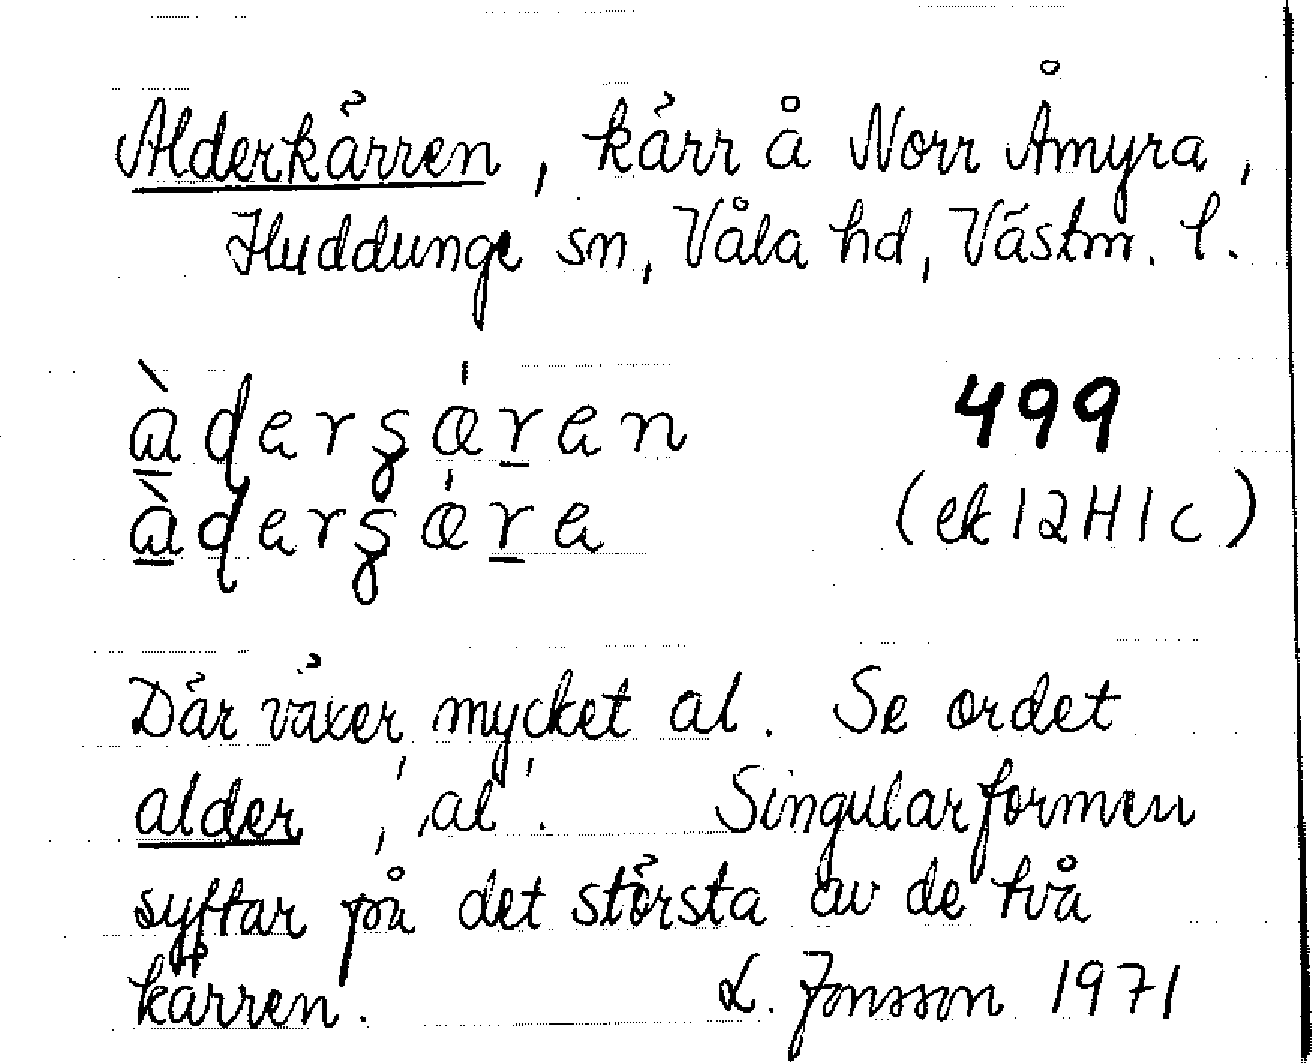 Alderkärren, kärr å Norr Åmyra,
Huddunge sn, Våla hd, Västm. l.
499
(ek 12H1c)
Där växer mycket al. Se ordet
alder, 'al'. Singularformen
syftar på det största av de två
kärren. L. Jonsson 1971